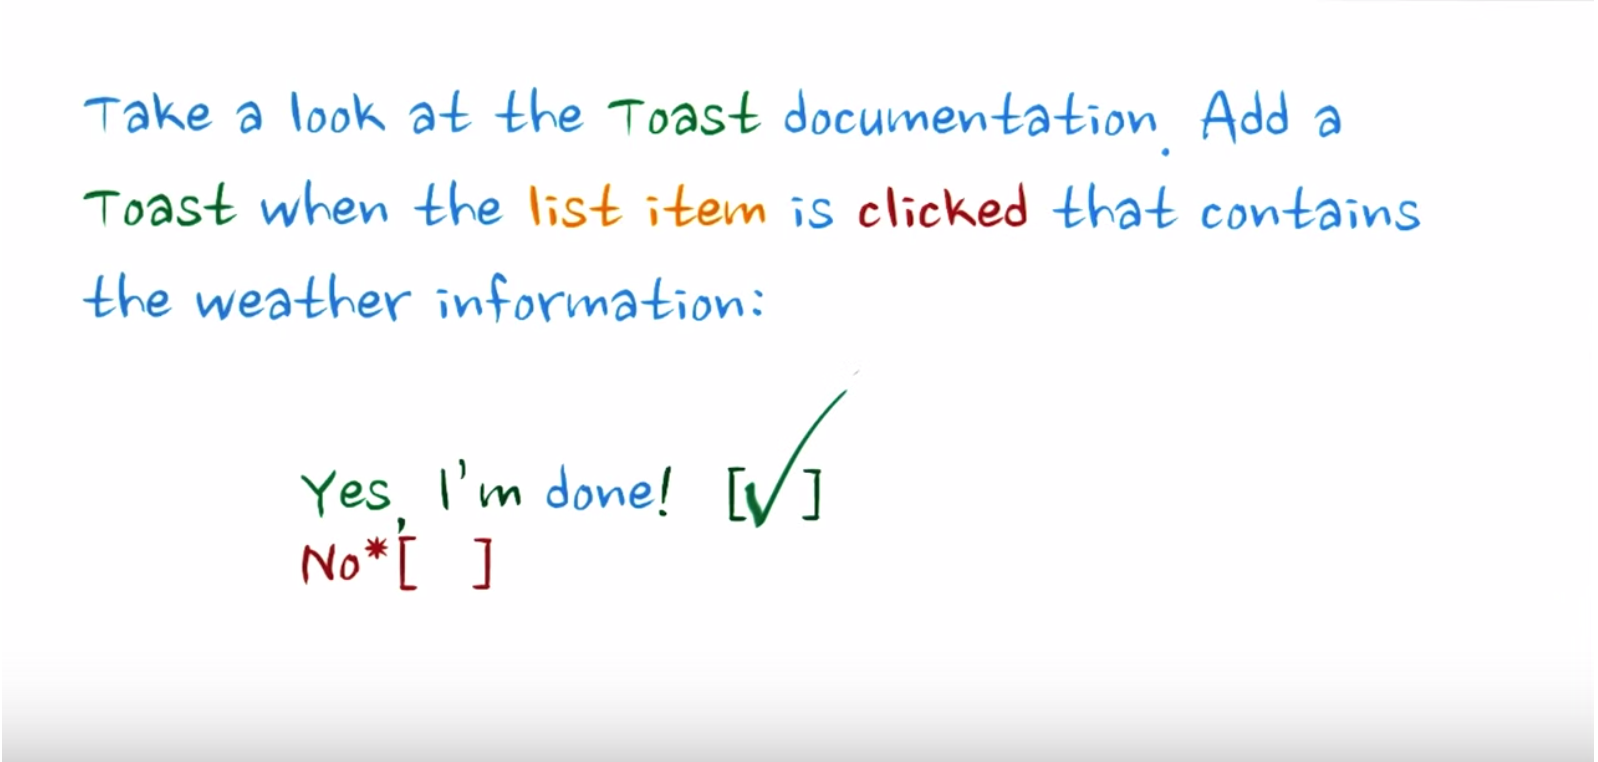 Take a look at the Toast documentation. Add a
Toast when the list item is clicked that contains
the weather information:
Yes, I'm done! [✓]
No*[ ]